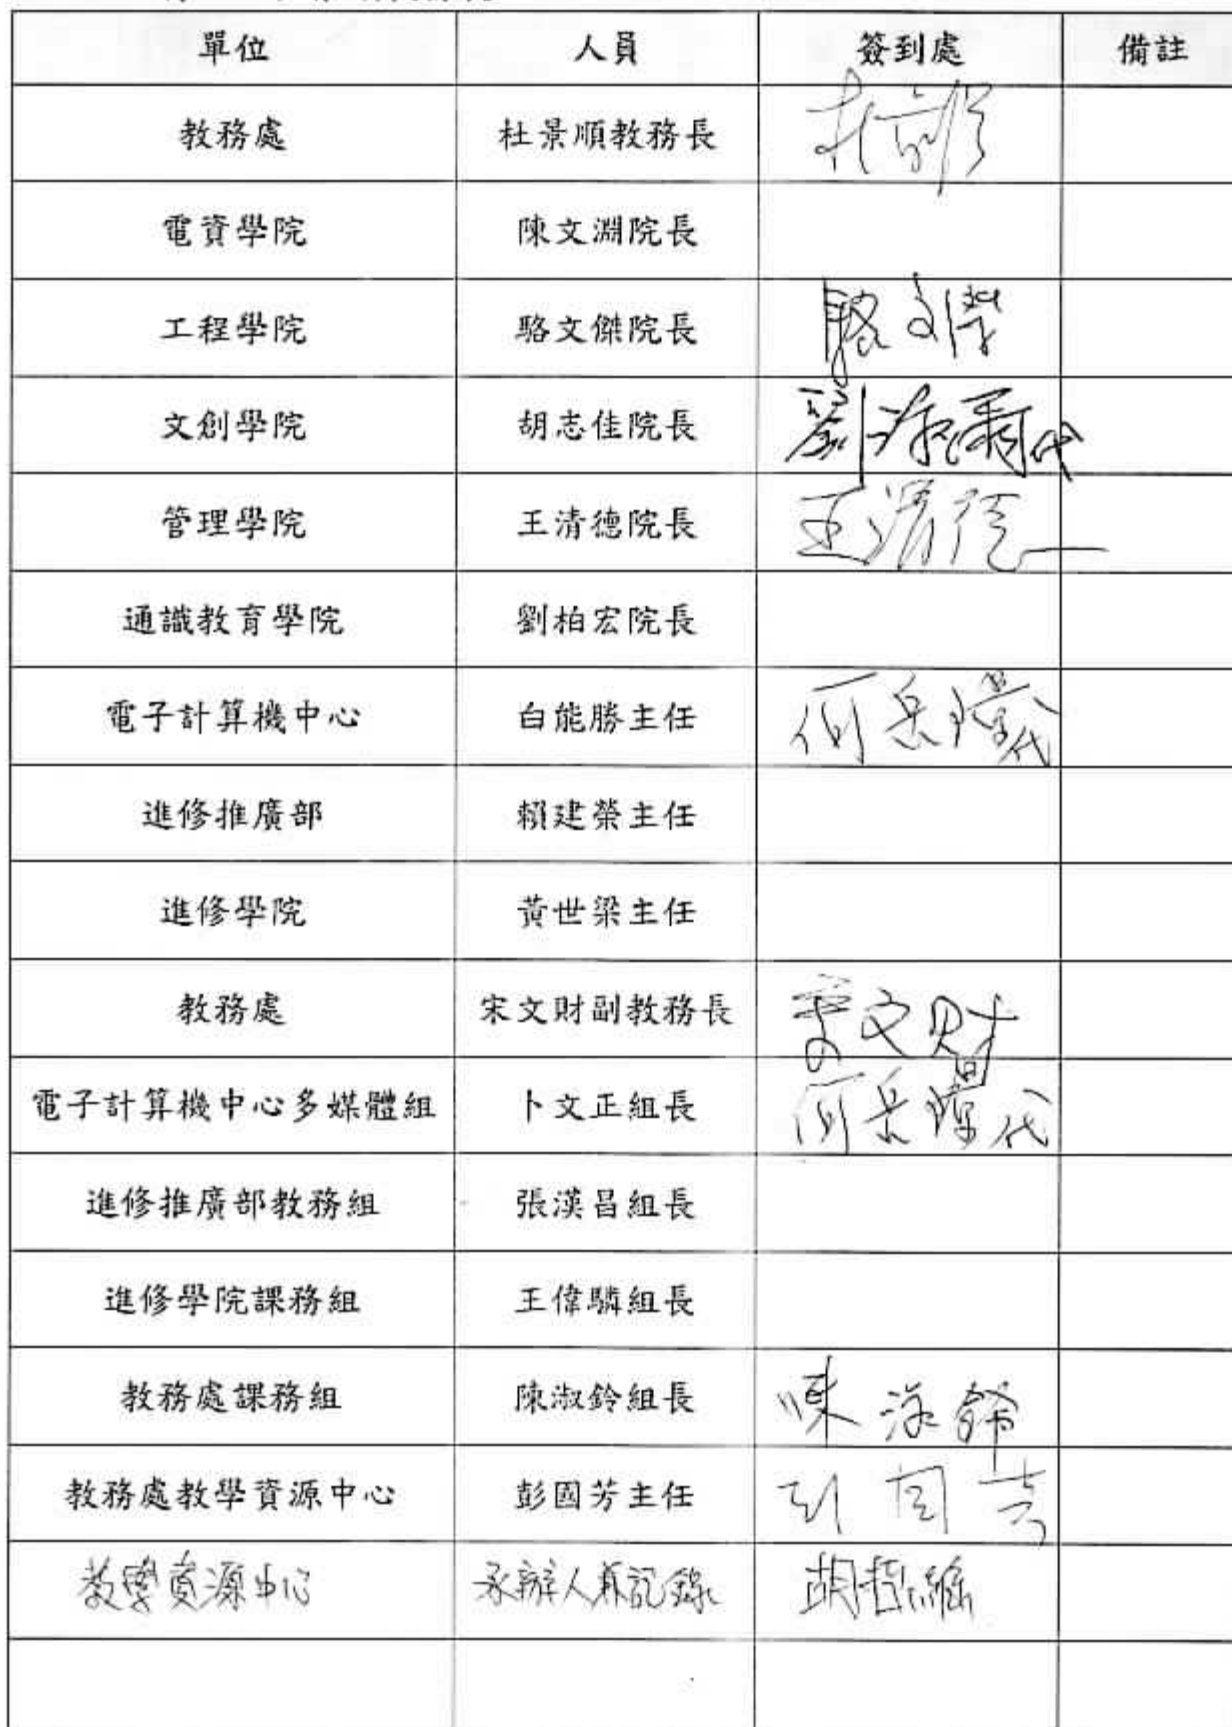 單位 人員 簽到處 備註
教務處 杜景順教務長 杜景順
電資學院 陳文淵院長
工程學院 駱文傑院長 駱文傑
文創學院 胡志佳院長 劉 代
管理學院 王清德院長 王清德
通識教育學院 劉柏宏院長
電子計算機中心 白能勝主任 何岳璋代
進修推廣部 賴建榮主任
進修學院 黃世梁主任
教務處 宋文財副教務長 宋文財
電子計算機中心多媒體組 卜文正組長 何岳璋代
進修推廣部教務組 張漢昌組長
進修學院課務組 王偉驎組長
教務處課務組 陳淑鈴組長 陳淑鈴
教務處教學資源中心 彭國芳主任 彭國芳
教學資源中心 承辦人兼記錄 胡哲維